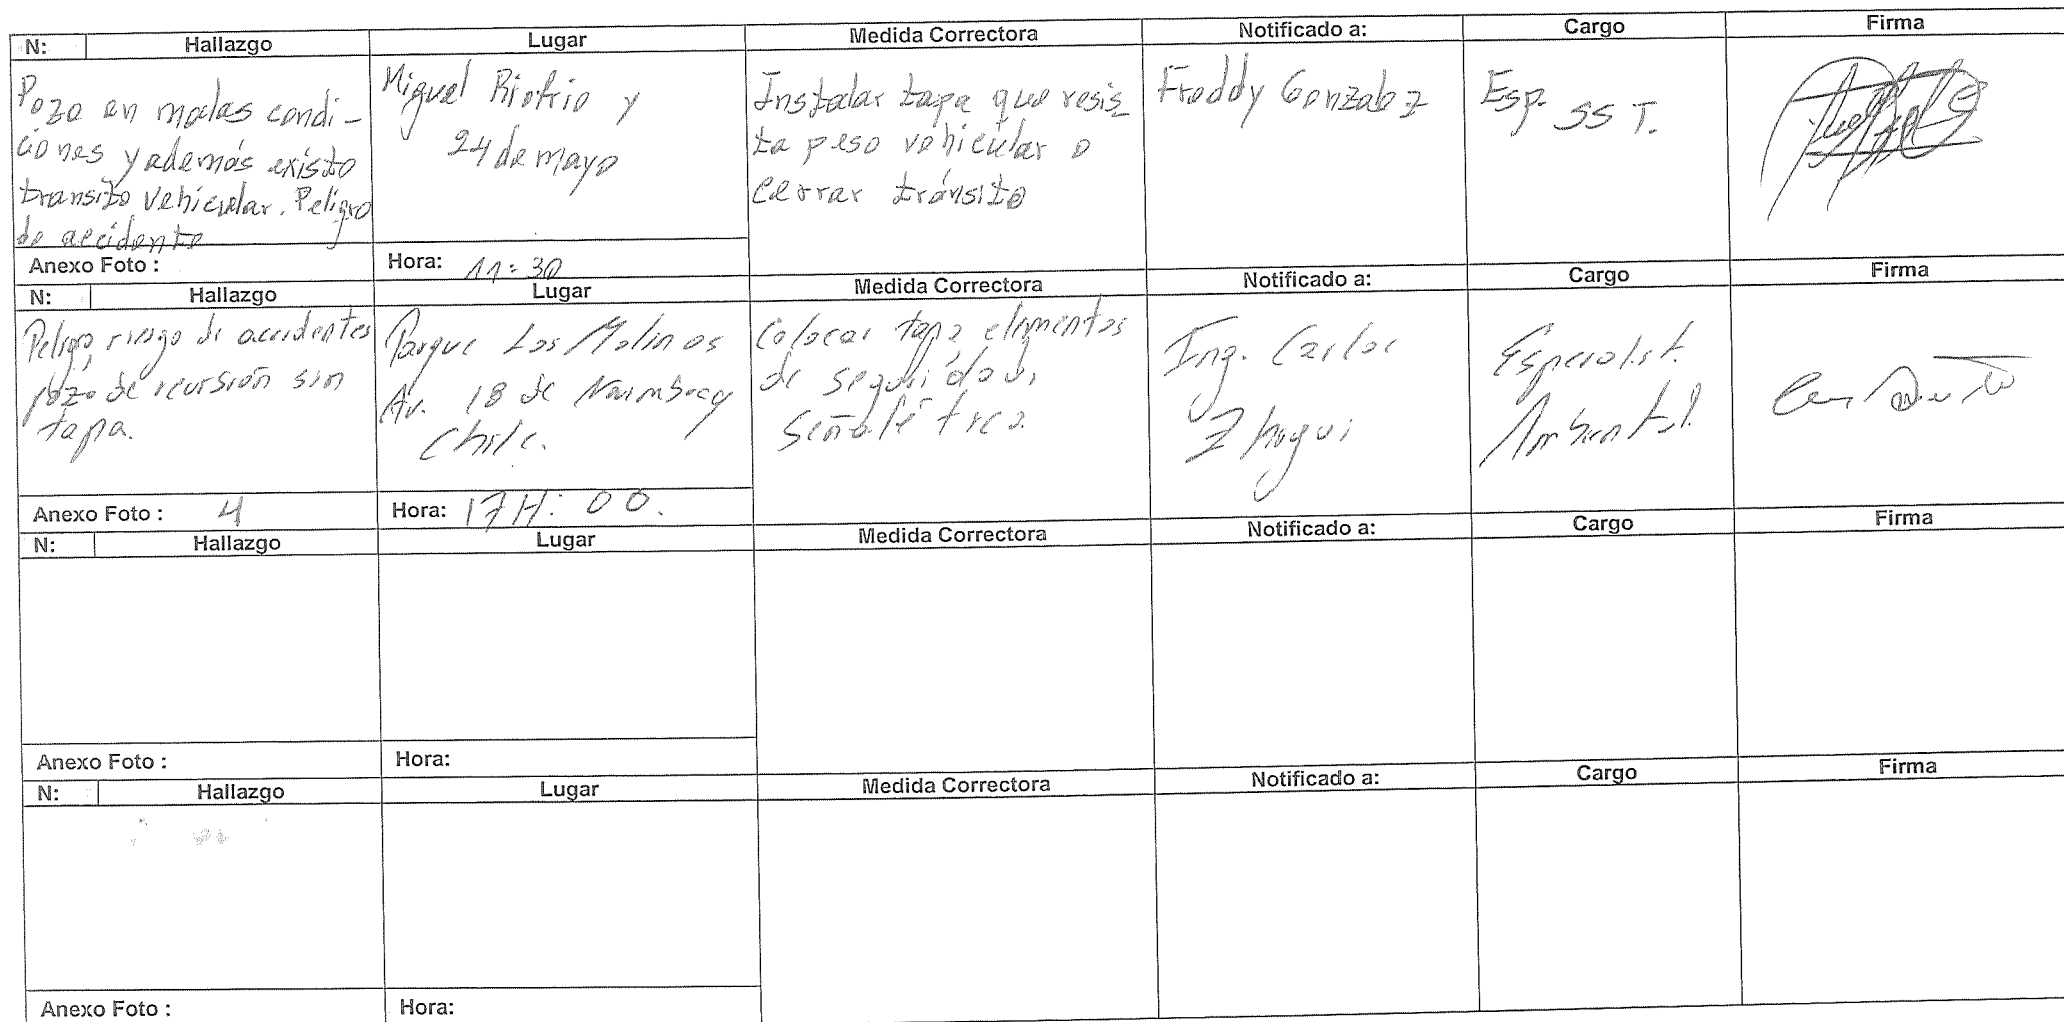 N: Hallazgo Lugar Medida Correctora Notificado a: Cargo Firma
Pozo en malas condi-
ciones y además existe
transito vehicular. Peligro
de accidente
Miguel Riofrio y
24 de mayo
Instalar tapa que resis
ta peso vehicular o
cerrar tránsito
Freddy Gonzalez
Esp. SS T.
Anexo Foto :
Hora: 11:30
N: Hallazgo Lugar Medida Correctora Notificado a: Cargo Firma
Peligro, riesgo de accidentes
pozo de revisión sin
tapa.
Parque Los Molinos
Av. 18 de Noviembre y
Chile.
Colocar tapa elementos
de seguridad,
Ing. Carlos
Zhagui
Especialist.
Ambiental.
Anexo Foto : 4
Hora: 17H: 00.
N: Hallazgo Lugar Medida Correctora Notificado a: Cargo Firma
Anexo Foto :
Hora:
N: Hallazgo Lugar Medida Correctora Notificado a: Cargo Firma
Anexo Foto :
Hora: